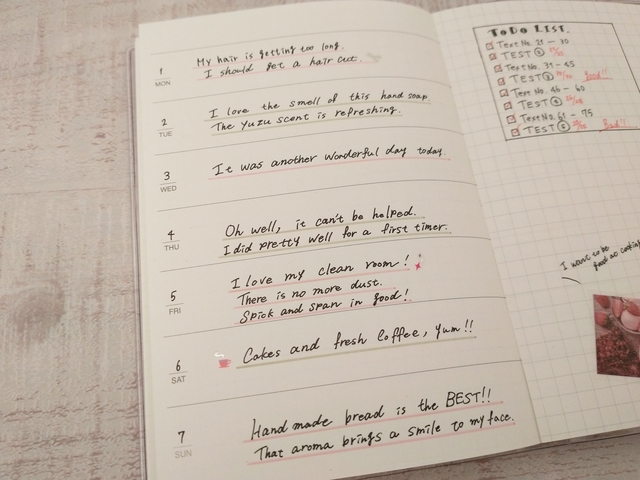 1
MON
My hair is getting too long.
I should get a hair cut.
2
TUE
I love the smell of this hand soap.
The Yuzu scent is refreshing.
3
WED
It was another wonderful day today.
4
THU
Oh well, it can't be helped.
I did pretty well for a first timer.
5
FRI
I love my clean room!
There is no more dust.
Spick and span in good!
6
SAT
Cakes and fresh Coffee, Yum!!
7
SUN
Hand made bread is the BEST!!
That aroma brings a smile to my face.
ToDo LIST.
Text No. 21 - 30
TEST
Text No. 31 - 45
TEST good!!
Text No. 46 - 60
TEST
Text No. 61 - 75
TEST Bad!!
I want to be
good at cooking